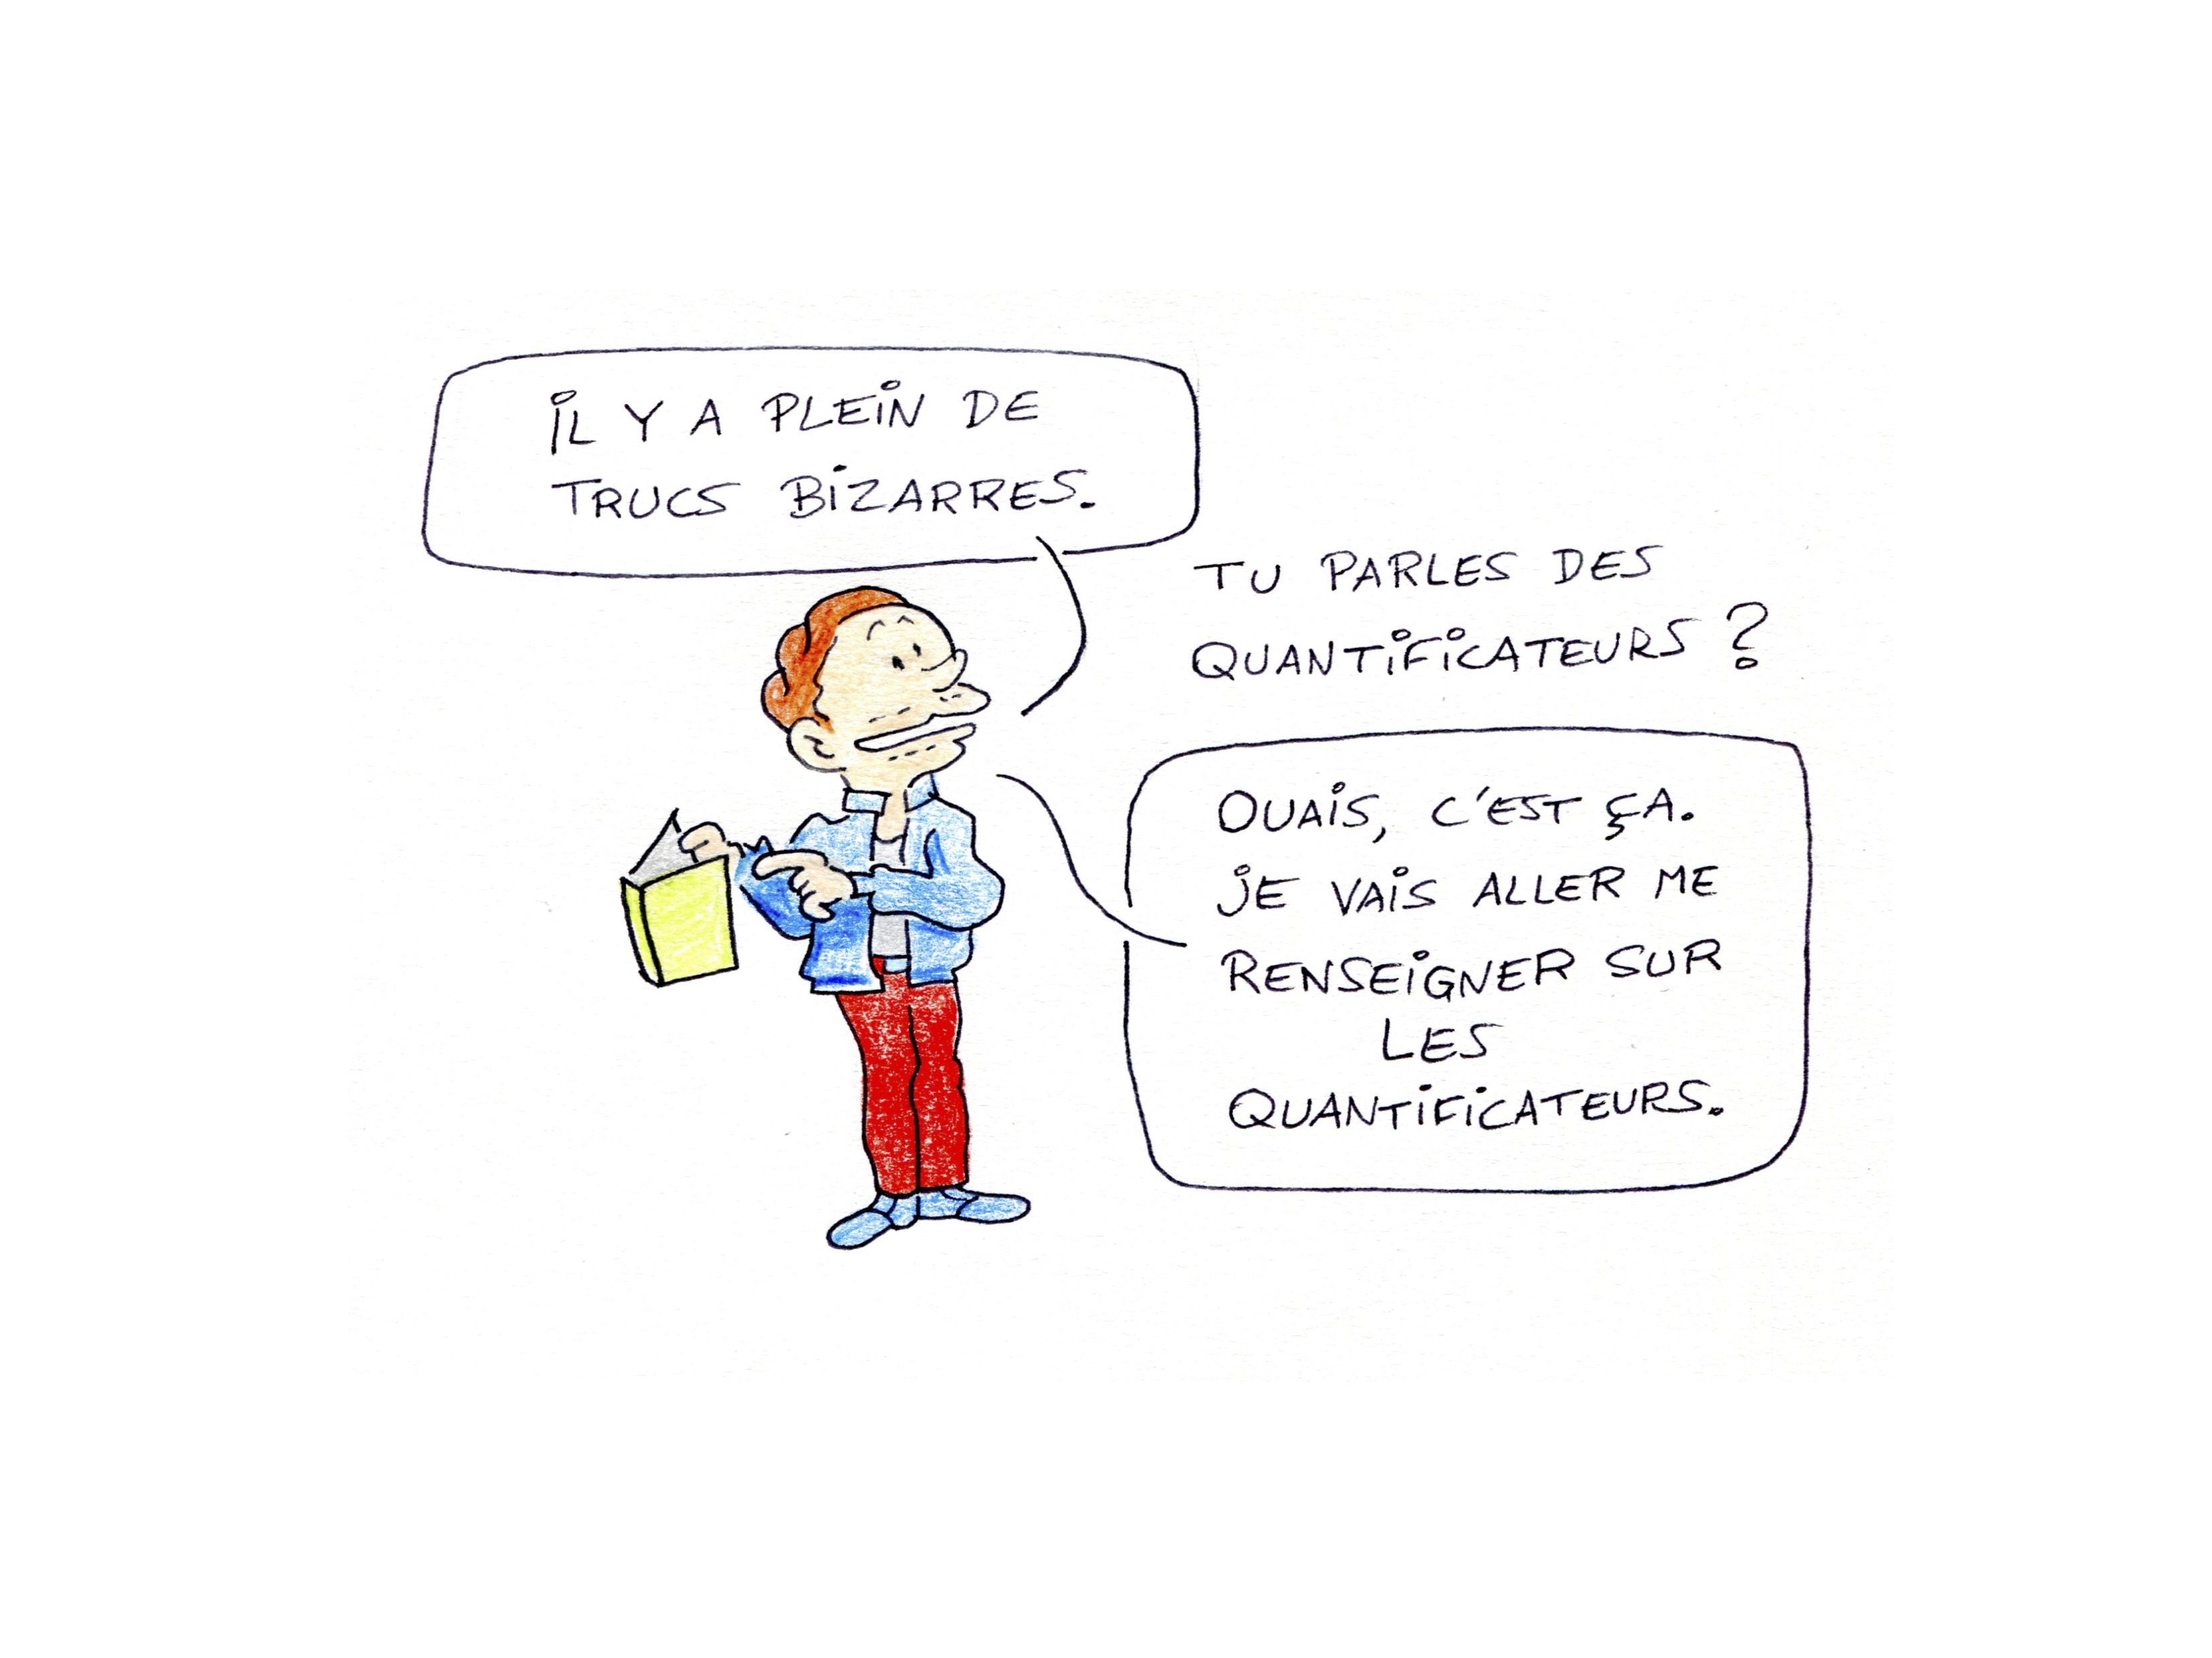 IL Y A PLEIN DE
TRUCS BIZARRES.
TU PARLES DES
QUANTIFICATEURS ?
OUAIS, C'EST ÇA.
JE VAIS ALLER ME
RENSEIGNER SUR
LES
QUANTIFICATEURS.